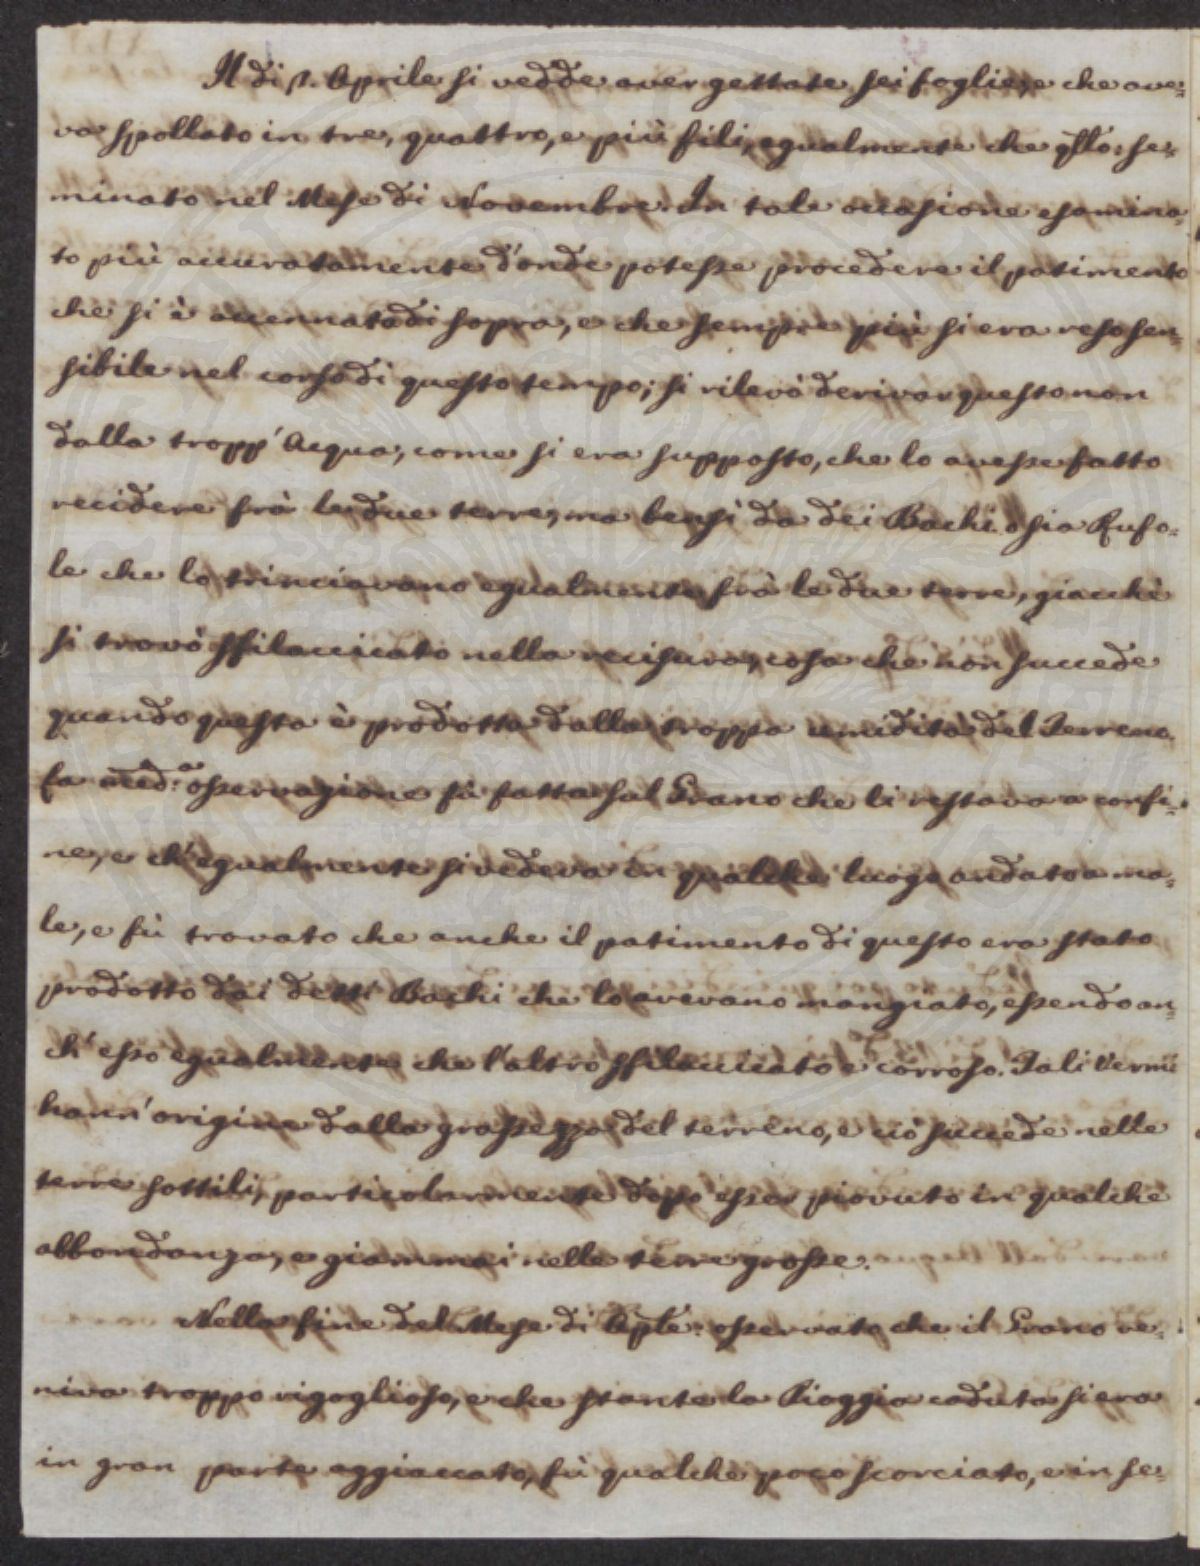 Il dì 1. Aprile si vedde aver gettate sei foglie, e che ave=
va spollato in tre, quattro, e più fili, egualmente che qllo: se=
minato nel Mese di Novembre. In tale occasione esamina=
to più accuratamente d'onde potesse procedere il patimento
che si è accennato di sopra, e che sempre più si era reso sen=
sibile nel corso di questo tempo; si rilevò derivar questo non
dalla tropp' Acqua, come si era supposto, che lo avesse fatto
recidere frà le due terre, ma bensì da dei Bachi o sia Rufo=
le che lo trinciavano egualmente frà le due terre, giacchè
si trovò sfilaccicato nella recisura, cosa che non succede
quando questa è prodotta dalla troppa umidità del Terreno.
La med:a osservazione fù fatta sul Grano che li restava a confi=
ne, e ch' egualmente si vedeva in qualche luogo andato a ma=
le, e fù trovato che anche il patimento di questo era stato
prodotto dai detti Bachi che lo avevano mangiato, essendo an=
ch' esso egualmente che l'altro sfilaccicato e corroso. Tali Vermi
hann' origine dalla grassezza del terreno, e ciò succede nelle
terre sottili, particolarmente dopo esser piovuto in qualche
abbondanza, e giammai nelle terre grosse.
Nella fine del Mese di Aple: osservato che il Grano ve=
niva troppo rigoglioso, e che stante la Pioggia caduta si era
in gran parte aggiaccato, fù qualche poco scorciato, e in se=